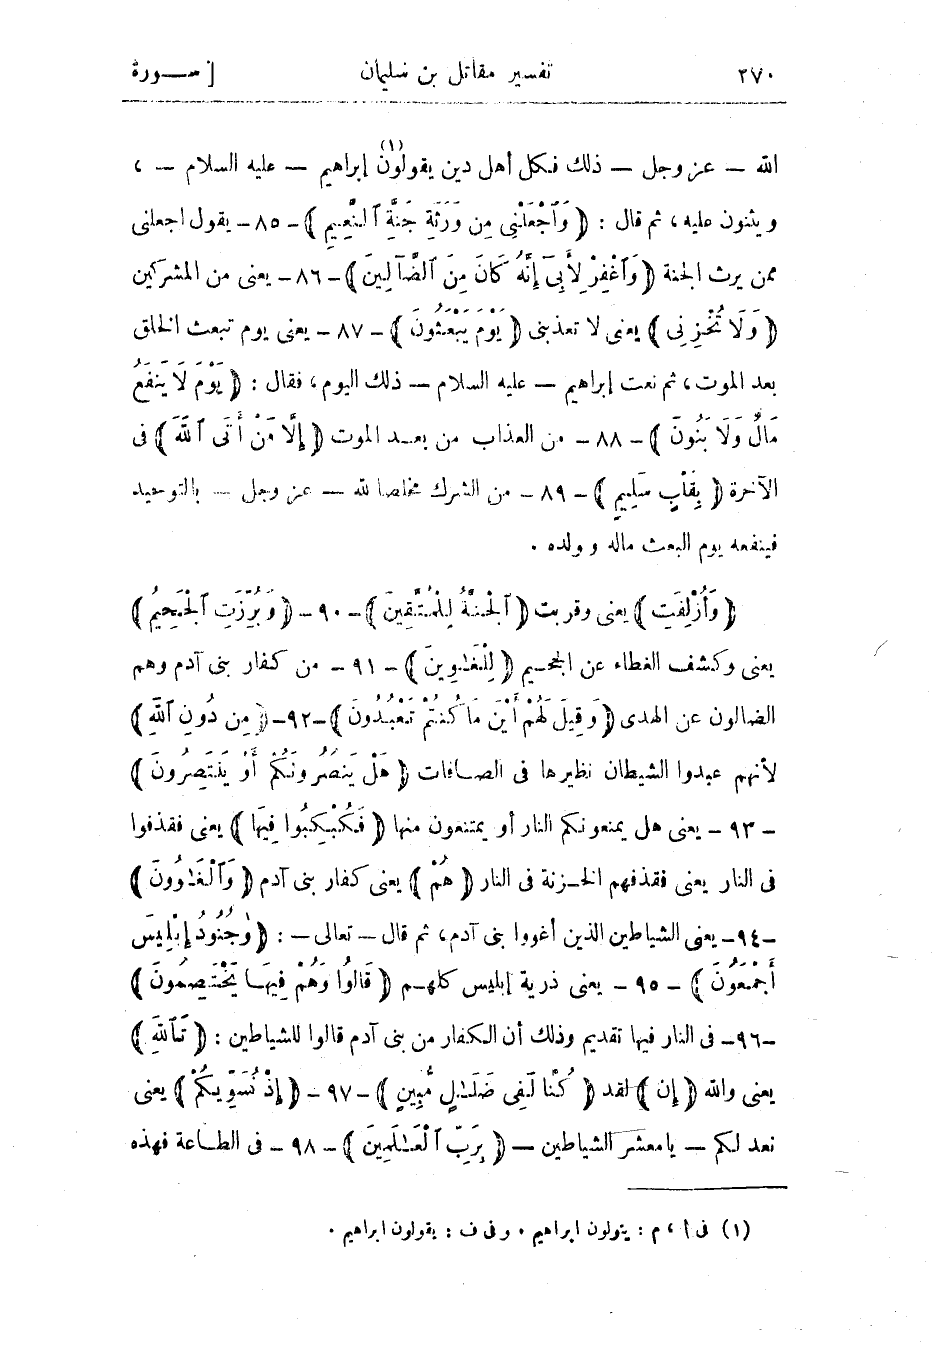 ٢٧٠ تفسير مقاتل بن سليمان [ ســورة
الله — عز وجل — ذلك فكل أهل دين يقولون (١) إبراهيم — عليه السلام — ،
ويثنون عليه ، ثم قال : ( وَٱجْعَلْنِى مِن وَرَثَةِ جَنَّةِ ٱلنَّعِيمِ ) - ٨٥ - يقول اجعلنى
ممن يرث الجنة ( وَٱغْفِرْ لِأَبِىٓ إِنَّهُ كَانَ مِنَ ٱلضَّآلِّينَ ) - ٨٦ - يعنى من المشركين
( وَلَا تُخْزِنِى ) يعنى لا تعذبنى ( يَوْمَ يُبْعَثُونَ ) - ٨٧ - يعنى يوم تبعث الخلق
بعد الموت ، ثم نعت إبراهيم — عليه السلام — ذلك اليوم ، فقال : ( يَوْمَ لَا يَنفَعُ
مَالٌ وَلَا بَنُونَ ) - ٨٨ - من العذاب من بعـد الموت ( إِلَّا مَنْ أَتَى ٱللَّهَ ) فى
الآخرة ( بِقَلْبٍ سَلِيمٍ ) - ٨٩ - من الشرك مخلصا لله — عز وجل — بالتوحيد
فينفعه يوم البعث ماله وولده .
( وَأُزْلِفَتِ ) يعنى وقربت ( ٱلْجَنَّةُ لِلْمُتَّقِينَ ) - ٩٠ - ( وَبُرِّزَتِ ٱلْجَحِيمُ )
يعنى وكشف الغطاء عن الجحـيم ( لِلْغَاوِينَ ) - ٩١ - من كفار بنى آدم وهم
الضالون عن الهدى ( وَقِيلَ لَهُمْ أَيْنَ مَا كُنتُمْ تَعْبُدُونَ ) - ٩٢ - ( مِن دُونِ ٱللَّهِ )
لأنهم عبدوا الشيطان نظيرها فى الصـافات ( هَلْ يَنصُرُونَكُمْ أَوْ يَنتَصِرُونَ )
- ٩٣ - يعنى هل يمنعونكم النار أو يمتنعون منها ( فَكُبْكِبُوا فِيهَا ) يعنى فقذفوا
فى النار يعنى فقذفهم الخـزنة فى النار ( هُمْ ) يعنى كفار بنى آدم ( وَٱلْغَاوُونَ )
- ٩٤ - يعنى الشياطين الذين أغووا بنى آدم ، ثم قال — تعالى — : ( وَجُنُودُ إِبْلِيسَ
أَجْمَعُونَ ) - ٩٥ - يعنى ذرية إبليس كلهـم ( قَالُوا وَهُمْ فِيهَـا يَخْتَصِمُونَ )
- ٩٦ - فى النار فيها تقديم وذلك أن الكفار من بنى آدم قالوا للشياطين : ( تَٱللَّهِ )
يعنى والله ( إِن ) لقد ( كُنَّا لَفِى ضَلَـٰلٍ مُّبِينٍ ) - ٩٧ - ( إِذْ نُسَوِّيكُمْ ) يعنى
نعد لكم — يا معشر الشياطين — ( بِرَبِّ ٱلْعَـٰلَمِينَ ) - ٩٨ - فى الطـاعة فهذه
(١) فى أ ، م : يتولون ابراهيم . وفى ف : يقولون ابراهيم .